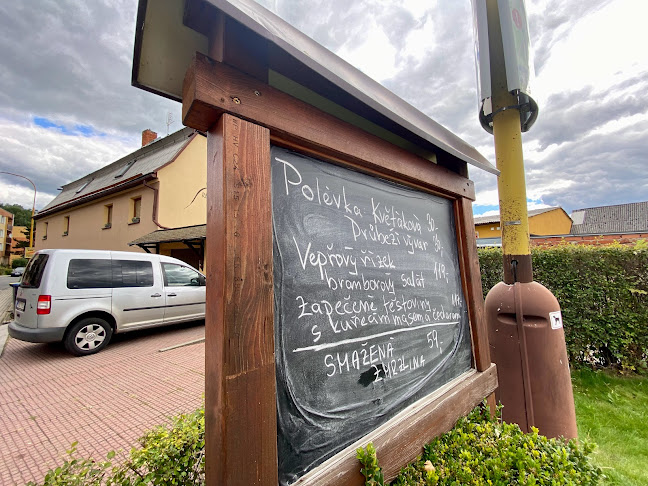 Polévka Květáková 30,-
Drůbeží vývar 30,-
Vepřový řízek 119,-
bramborový salát
Zapečené těstoviny
s kuřecím masem a čedarem
SMAŽENÁ 59,-
ZMRZLINA